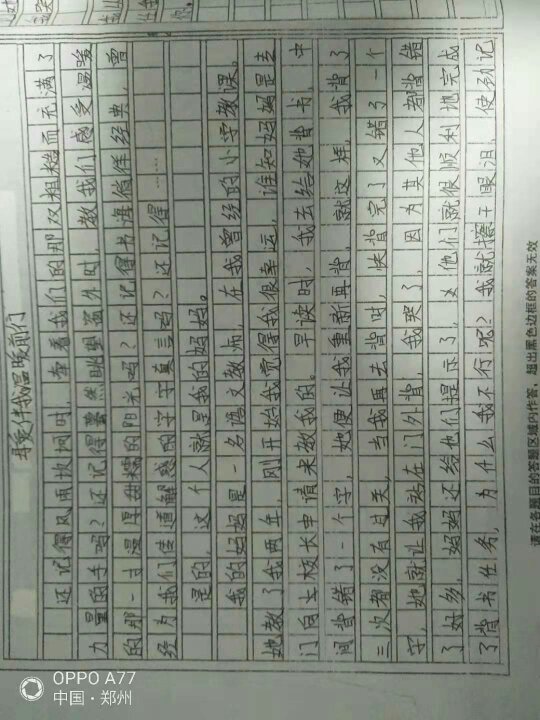 寻爱伴我温暖前行
还记得风雨坎坷时，牵着我们的那双粗糙而充满了
力量的手吗？还记得蓦然眺望窗外时，教我们感受温暖
的那一寸漫厚甜糯的阳光吗？还记得书海徜徉经典，曾
经为我们传道解惑的字字真言吗？还记得……
是的，这个人就是我的妈妈。
我的妈妈是一名语文教师，在我曾经的小学教课。
她教了我两年，刚开始我觉得我很幸运，谁知妈妈是去
门向上校长申请来教我的。早读时，我去给她背书，中
间背错了一个字，她便让我重新再背，就这样，我背了
三次都没有过关，当我再去背时，快背完了又错了一个
字，她就让我站在门外背，我哭了，因为其他人都背错
了好多，妈妈还给他们提示了，他们就很顺利地完成
了背书任务，为什么我不行呢？我就擦干眼泪，使劲记
请在各题目的答题区域内作答，超出黑色边框的答案无效
OPPO A77
中国·郑州